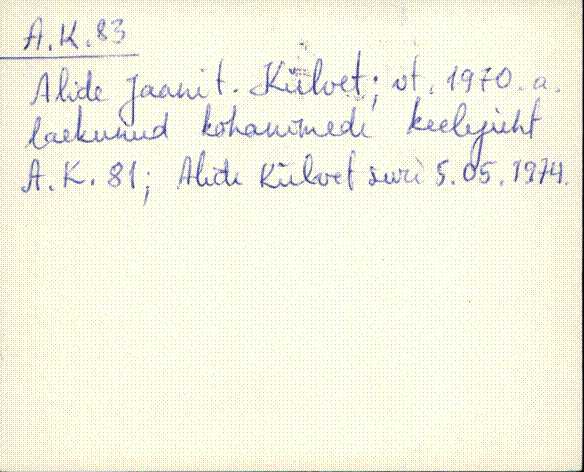 A.K.83
Alide Jaani t. Külvet; vt. 1970.a.
laekunud kohanimede keelejuht
A.K. 81; Alide Külvet suri 5.05.1974.